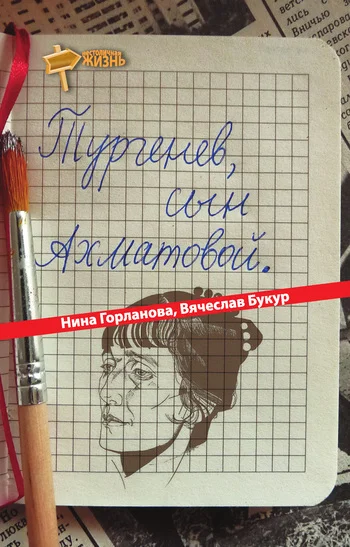 нестоличная
ЖИЗНЬ
Тургенев,
сын
Ахматовой.
Нина Горланова, Вячеслав Букур